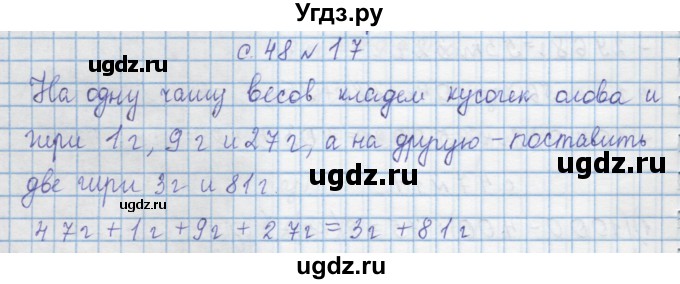 Угдз.ру
с. 48 № 17
ugdz.ru
На одну чашу весов кладем кусочек олова и
ugdz.ru ugdz.ru
гири 1г, 9г и 27г, а на другую - поставить
две гири 3г и 81г.
ugdz.ru
47г + 1г + 9г + 27г = 3г + 81г
ugdz.ru
ugdz.ru